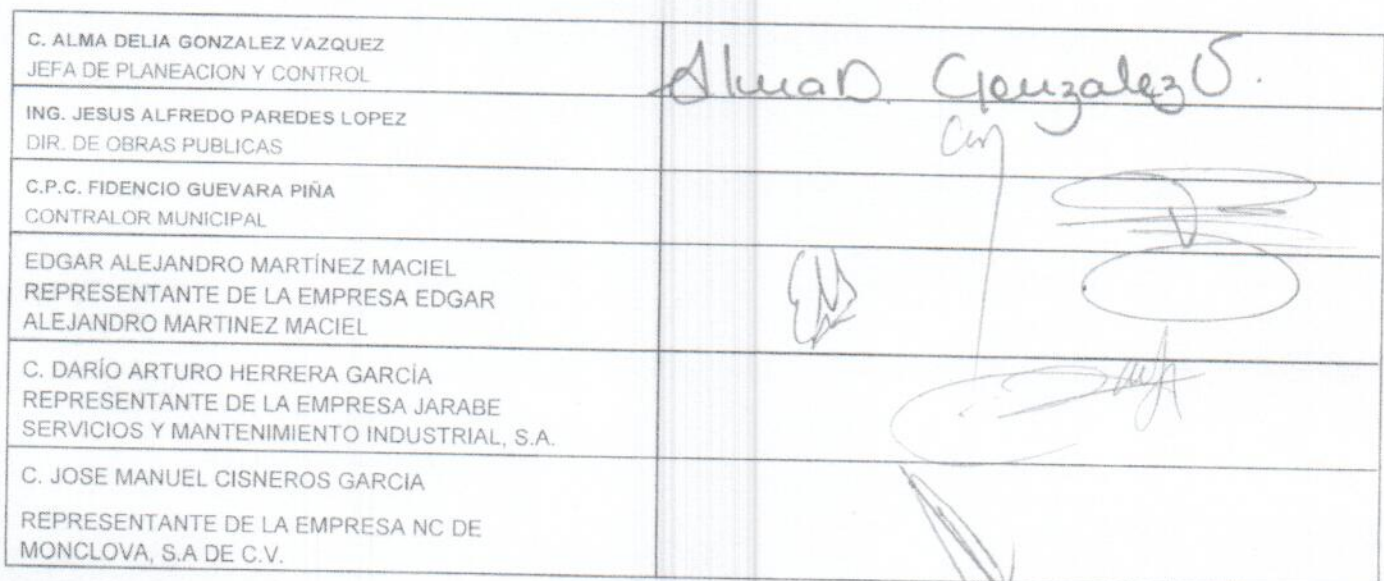 C. ALMA DELIA GONZALEZ VAZQUEZ
JEFA DE PLANEACION Y CONTROL
Alma D. Gonzalez V.
ING. JESUS ALFREDO PAREDES LOPEZ
DIR. DE OBRAS PUBLICAS
C.P.C. FIDENCIO GUEVARA PIÑA
CONTRALOR MUNICIPAL
EDGAR ALEJANDRO MARTÍNEZ MACIEL
REPRESENTANTE DE LA EMPRESA EDGAR
ALEJANDRO MARTINEZ MACIEL
C. DARÍO ARTURO HERRERA GARCÍA
REPRESENTANTE DE LA EMPRESA JARABE
SERVICIOS Y MANTENIMIENTO INDUSTRIAL, S.A.
C. JOSE MANUEL CISNEROS GARCIA
REPRESENTANTE DE LA EMPRESA NC DE
MONCLOVA, S.A DE C.V.